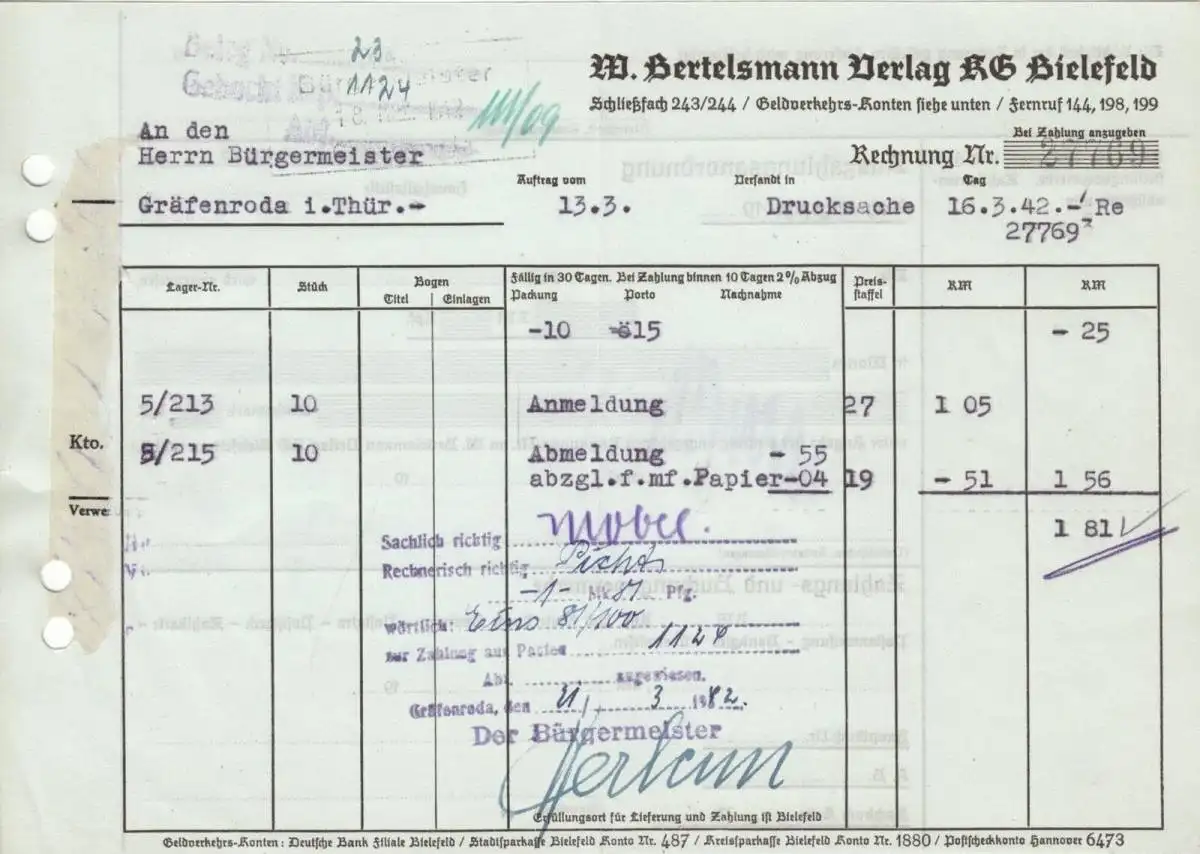 Beleg Nr. 23
Gebucht 1124
W. Bertelsmann Verlag KG Bielefeld
Schließfach 243/244 / Geldverkehrs-Konten siehe unten / Fernruf 144, 198, 199
An den
Herrn Bürgermeister
Bei Zahlung anzugeben
Rechnung Nr. 27769
Auftrag vom Versandt in Tag
Gräfenroda i.Thür.- 13.3. Drucksache 16.3.42.- Re
27769
Lager-Nr. Stück Bogen Titel Einlagen
Fällig in 30 Tagen. Bei Zahlung binnen 10 Tagen 2% Abzug
Packung Porto Nachnahme
Preis-staffel RM RM
-10 15 - 25
5/213 10 Anmeldung 27 1 05
Kto.
5/215 10 Abmeldung - 55
abzgl.f.mf.Papier-04 19 - 51 1 56
Verwe
1 81
Sachlich richtig
Rechnerisch richtig
-1- Mk 81 Pfg.
wörtlich: Eins 81/100
zur Zahlung aus 1124
Abt. angewiesen.
Gräfenroda, den 21. 3 1942.
Der Bürgermeister
Erfüllungsort für Lieferung und Zahlung ist Bielefeld
Geldverkehrs-Konten: Deutsche Bank Filiale Bielefeld / Stadtsparkasse Bielefeld Konto Nr. 487 / Kreissparkasse Bielefeld Konto Nr. 1880 / Postscheckkonto Hannover 6473